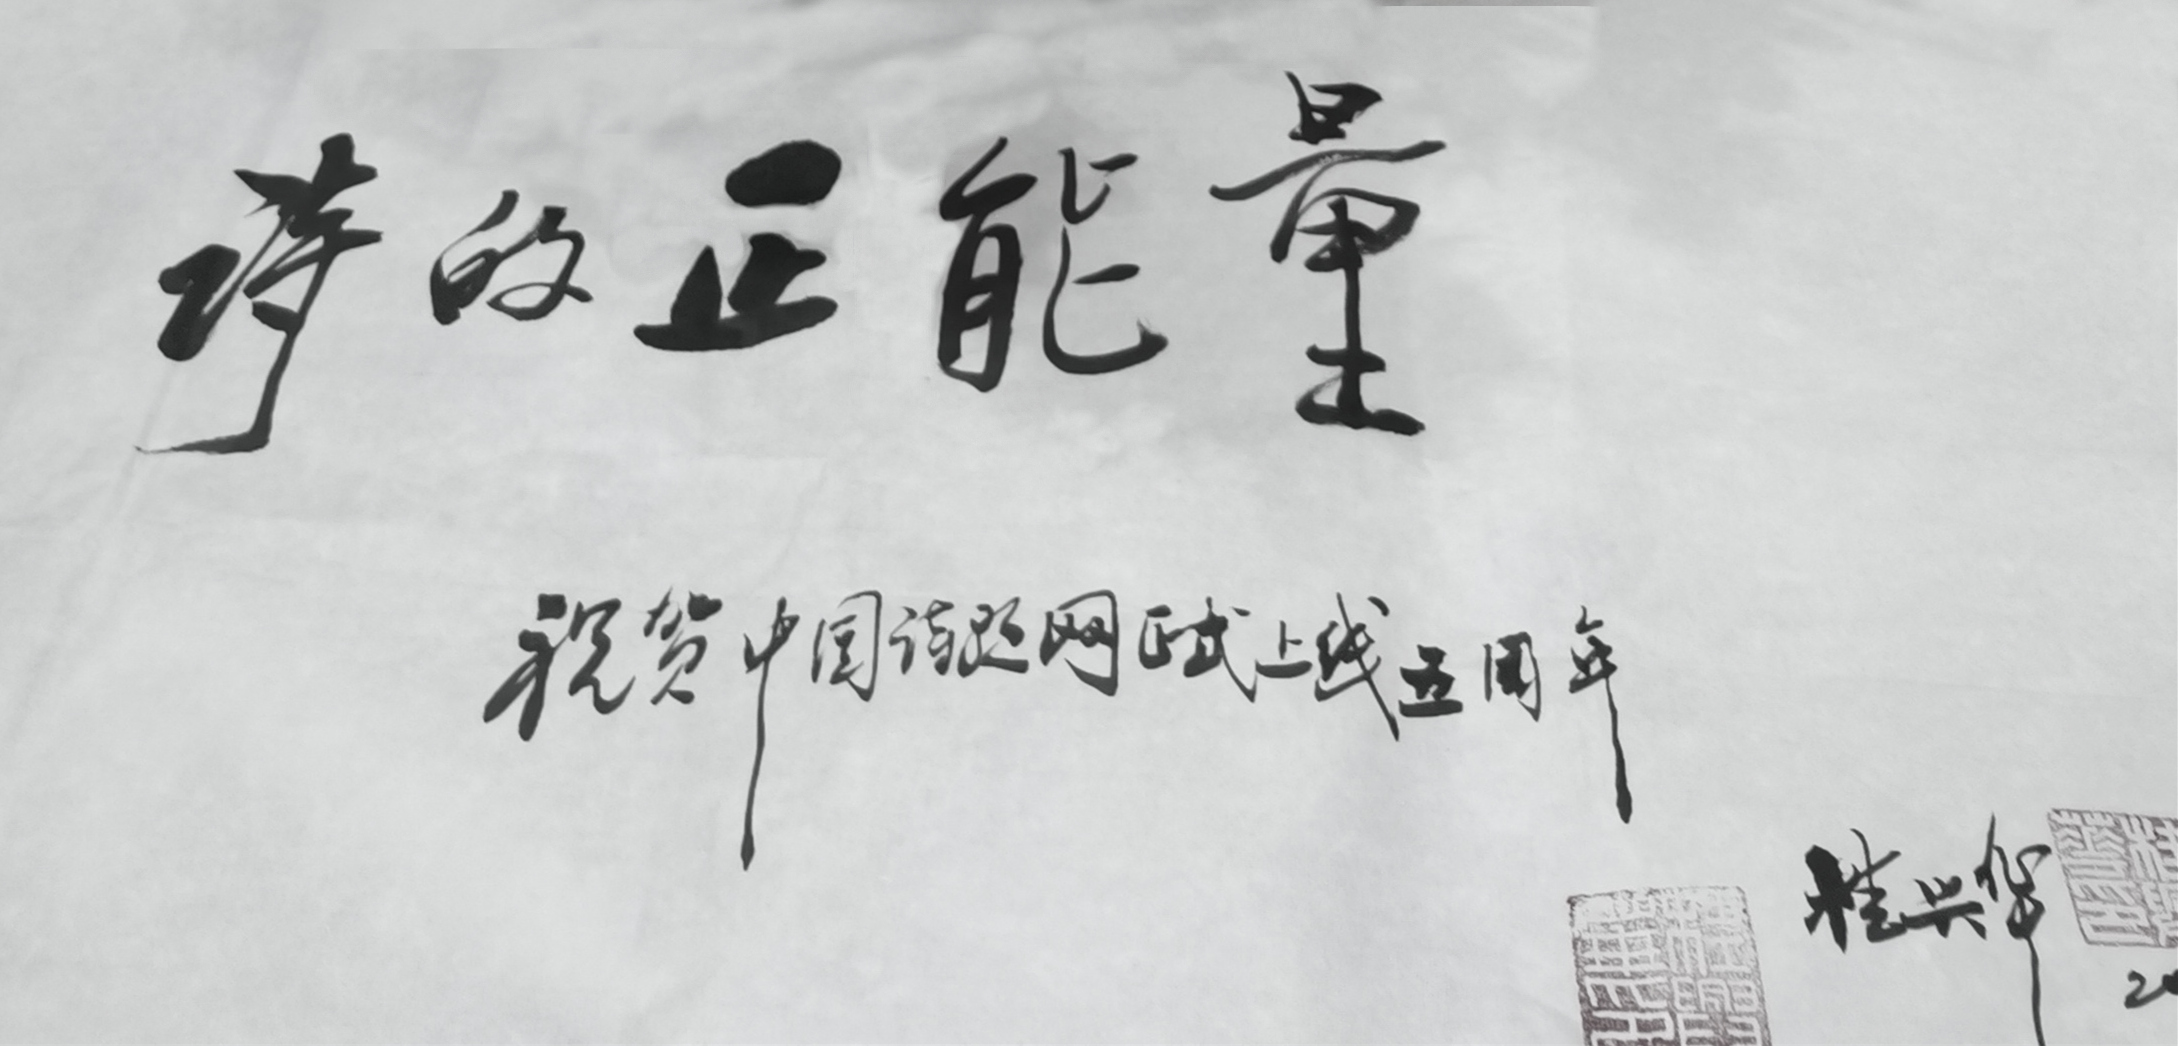 诗的正能量
祝贺中国诗题网正式上线五周年
桂兴华
20